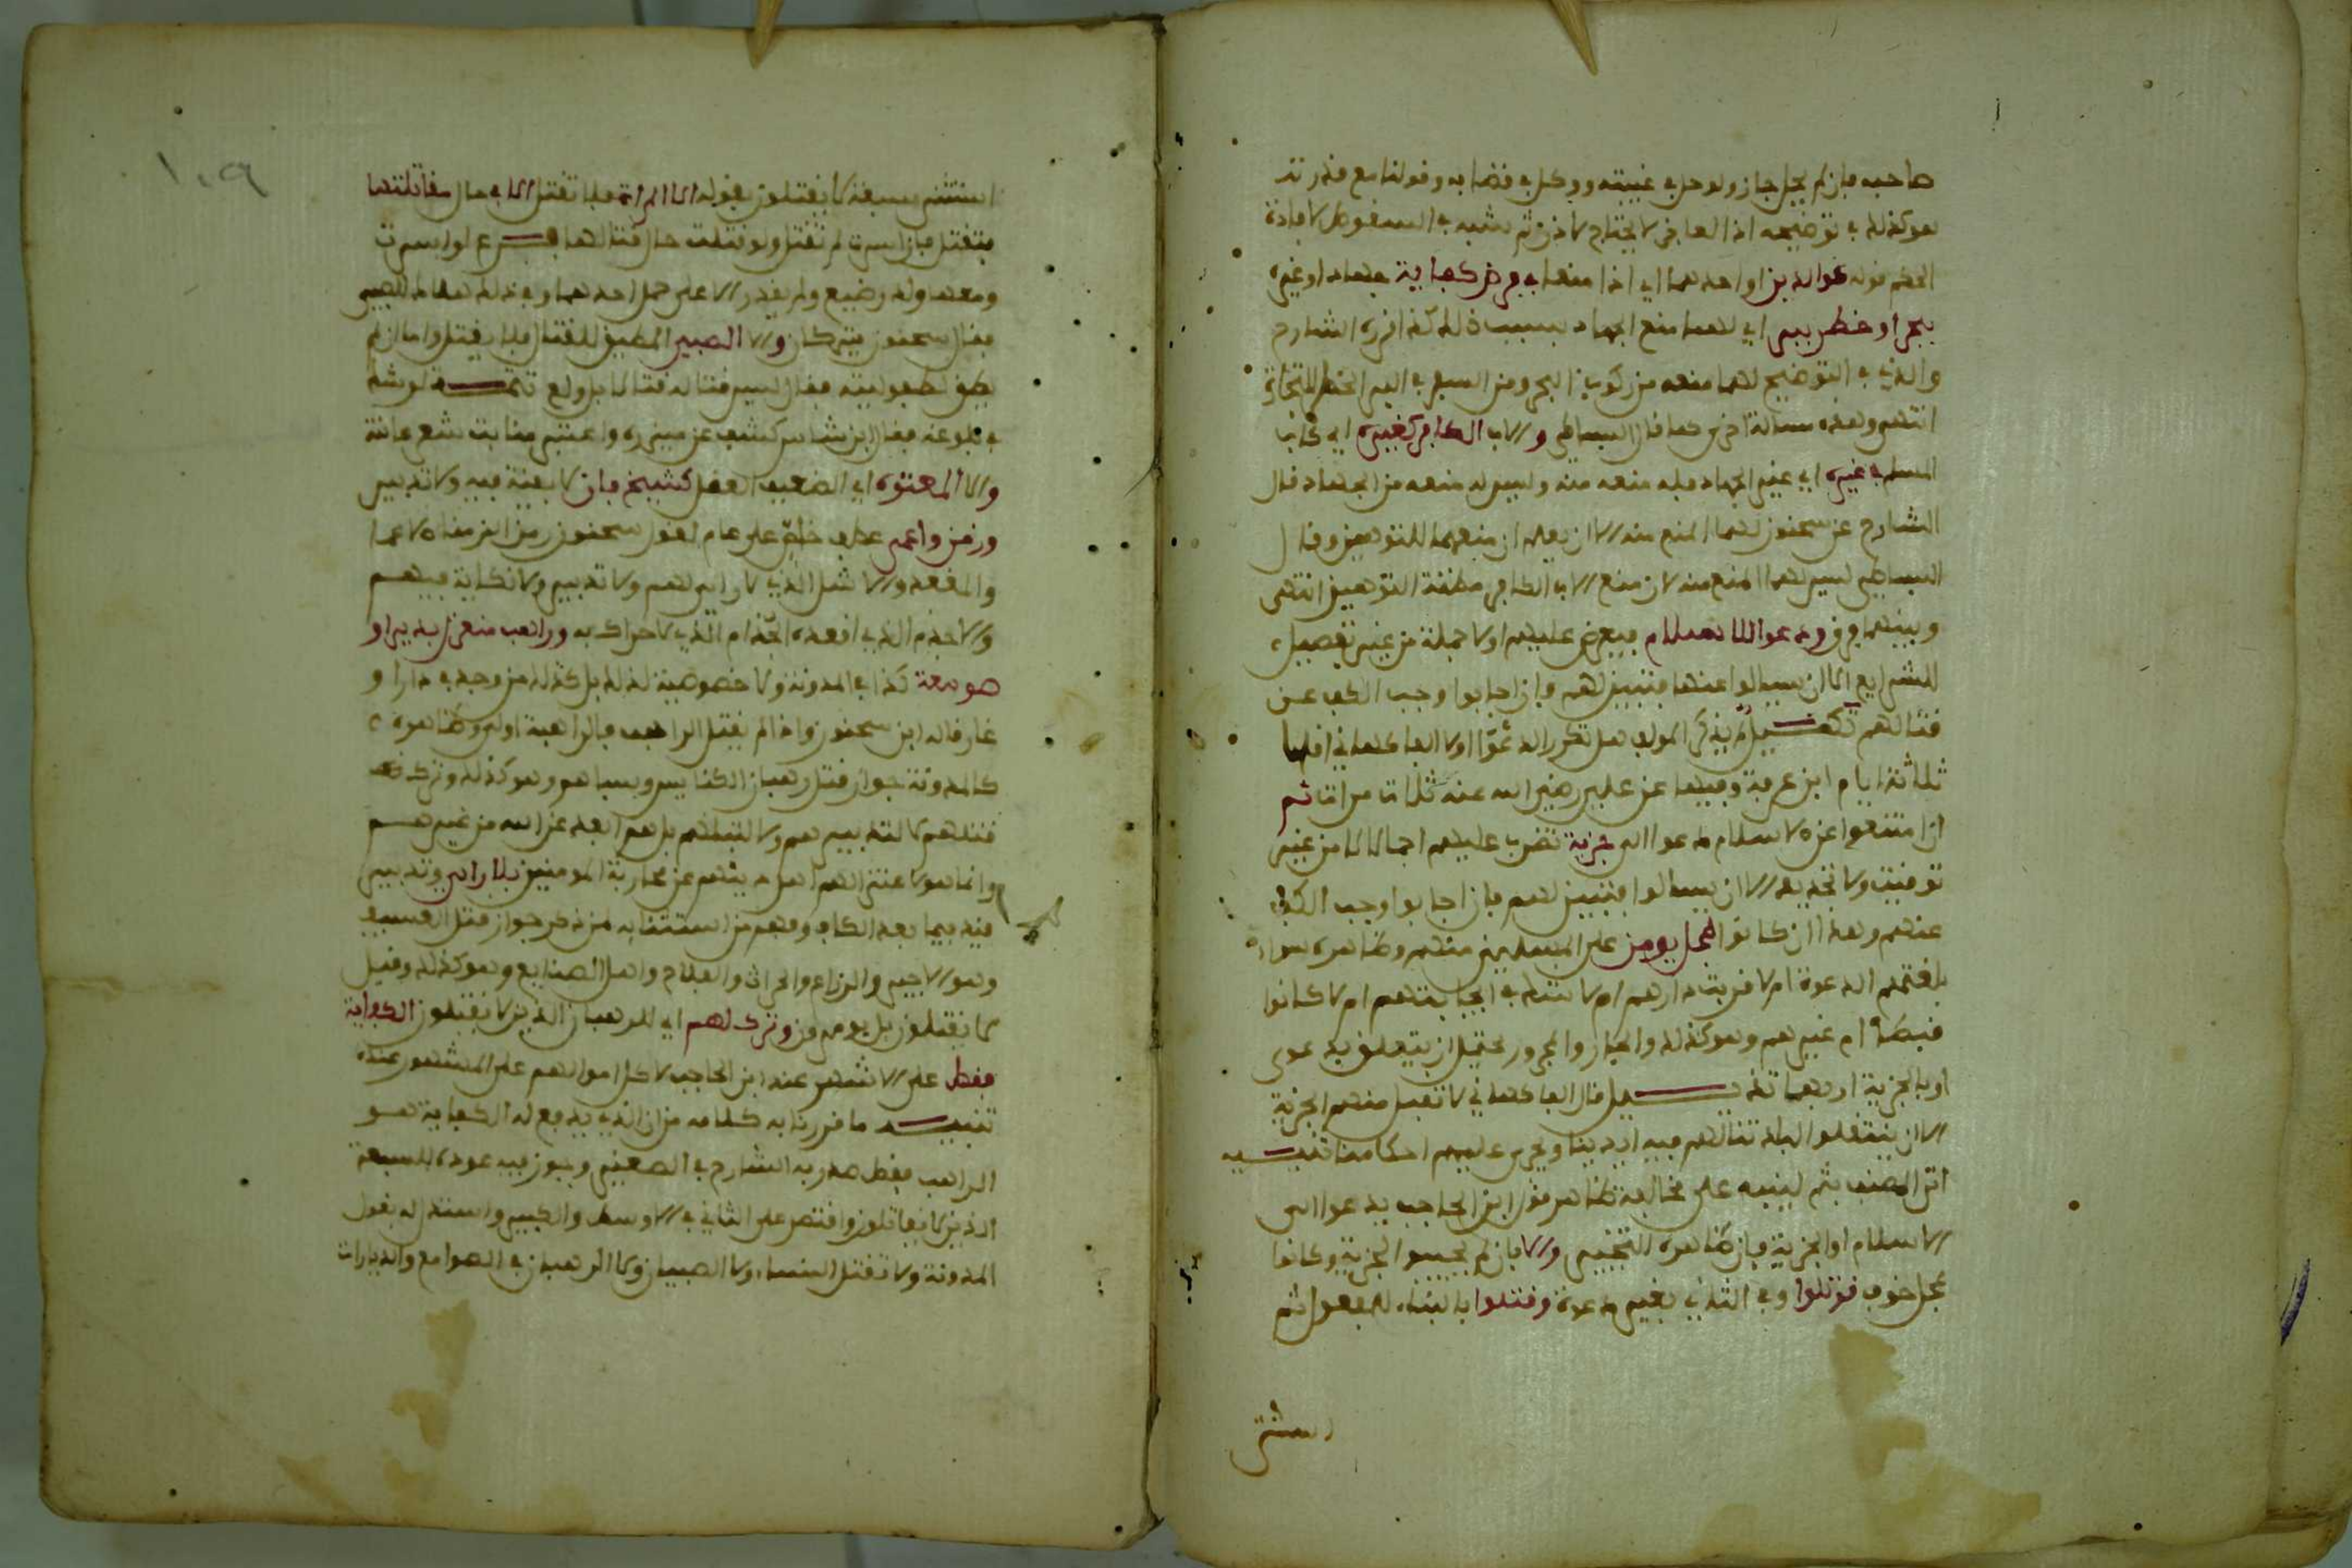 صاحبه فإن لم يحل جاز ولو حل في غيبته ووكل في قضايه وقولنا مع قدرته
هو كذلك في توضيحه اذ العاجز لا يحتاج لاذن ثم شبه في السقوط لافادة
الحكم قوله كوالدين او احدهما اي اذا منعا في فرض كفاية جهاد او غيره
ببحر او خطر ببر اي لهما منع الجهاد بسبب ذلك كذا قرره الشارح
والذي في التوضيح لهما منعه من ركوب البحر ومن السفر في البر الخطر للتجارة
انتهى وهذه مسالة اخرى كما قال البساطي والاب الكافر كغيره اي كالاب
المسلم في غيره اي غير الجهاد فله منعه منه وليس له منعه من الجهاد قال
الشارح عن سحنون لهما المنع منه الا ان يعلم ان منعهما للتوهين وقال
البساطي ليس لهما المنع منه لان منع الاب الكافر مظنة التوهين انتهى
وبينهما فرق ودعوا للاسلام فيعرض عليهم اولا جملة من غير تفصيل
للشرايع الا ان يسالوا عنها فتبين لهم فان اجابوا وجب الكف عن
قتالهم تكميل لم يذكر المولف هل تكرر الدعوى اولا الفاكهاني اقلها
ثلاثة ايام ابن عرفة وفيها عن علي رضي الله عنه ثلاث مرات ثم
ان امتنعوا عن الاسلام دعوا الى جزية تضرب عليهم اجمالا من غير
توقيت ولا تحديد الا ان يسالوا فتبين لهم فان اجابوا وجب الكف
عنهم وهذا ان كانوا بمحل يومن على المسلمين منهم وظاهره سواء
بلغتهم الدعوة ام لا قربت دارهم ام لا شك في اجابتهم ام لا كانوا
قبطا ام غيرهم وهو كذلك والجار والمجرور يحتمل ان يتعلق بدعوى
او بالجزية او بهما تذييل قال الفاكهاني لا تقبل منهم الجزية
الا ان ينتقلوا لبلد تنالهم فيه ايدينا ويجري عليهم احكامنا تنبيه
اتى المصنف بثم لينبه على مخالفة ظاهر قول ابن الحاجب يدعوا الى
الاسلام او الجزية فان ظاهره التخيير والا فان لم يجيبوا الجزية وكانوا
بمحل خوف قوتلوا وفي الثاني بغير دعوة وقتلوا بالبناء للمفعول ثم
استثنى
١٠٩
استثنى سبعة لا يقتلون بقوله الا المراة فلا تقتل الا في حال مقاتلتها
فتقتل فان اسرت لم تقتل ولو قتلت حال قتالها فرع لو اسرت
ومعها ولد رضيع ولم يقدر الا على حمل احدهما وفي ذلك هلاك للصبي
فقال سحنون يتركان والا الصبي المطيق للقتال فلا يقتل واما ان لم
يطق لطفوليته فقال ليس قتاله قتالا بل ولع تتمة لو شك
في بلوغه فقال ابن شاس كشف عن ميزره واعتبر منابت شعر عانته
والا المعتوه اي الضعيف العقل كشيخ فان لا بقية فيه ولا تدبير
وزمن واعمى عطف خاص على عام لقول سحنون زمن الزمناء الاعما
والمقعد والاشل الذي لا راي لهم ولا تدبير ولا نكاية فيهم
والاجذم الذي اقعده الجذام الذي لا حراك به وراهب منعزل بدير او
صومعة كذا في المدونة ولا خصوصية لذلك بل كذلك من وجد في دار او
غار قاله ابن سحنون واذا لم يقتل الراهب فالراهبة اولى وظاهره
كالمدونة جواز قتل رهبان الكنايس وسباهم وهو كذلك وترك
قتلهم لا لتدبيرهم ولا لتبتلهم بل هم ابعد عن الله من غيرهم
وانما هو لاعتزالهم اهل دينهم عن محاربة المومنين بلا راي وتدبير
قيد فيما بعد الكاف وفهم من استثنايه من ذكر جواز قتل العسيف
وهو الاجير والزراع والحراث والفلاح واهل الصنايع وهو كذلك وقيل
لا يقتلون بل يومرون وترك لهم اي للرهبان الذين لا يقتلون الكفاية
فقط على الاشهر عند ابن الحاجب لا كل اموالهم على المشهور عنده
تنبيه ما قررنا به كلامه من ان الذي يدفع له الكفاية هو
الراهب فقط صدر به الشارح في الصغير وجوز فيه عوده للسبعة
الذين لا يقاتلون واقتصر على الثاني في الاوسط والكبير واستدل له بقول
المدونة ولا تقتل النساء ولا الصبيان ولا الرهبان في الصوامع والديارات